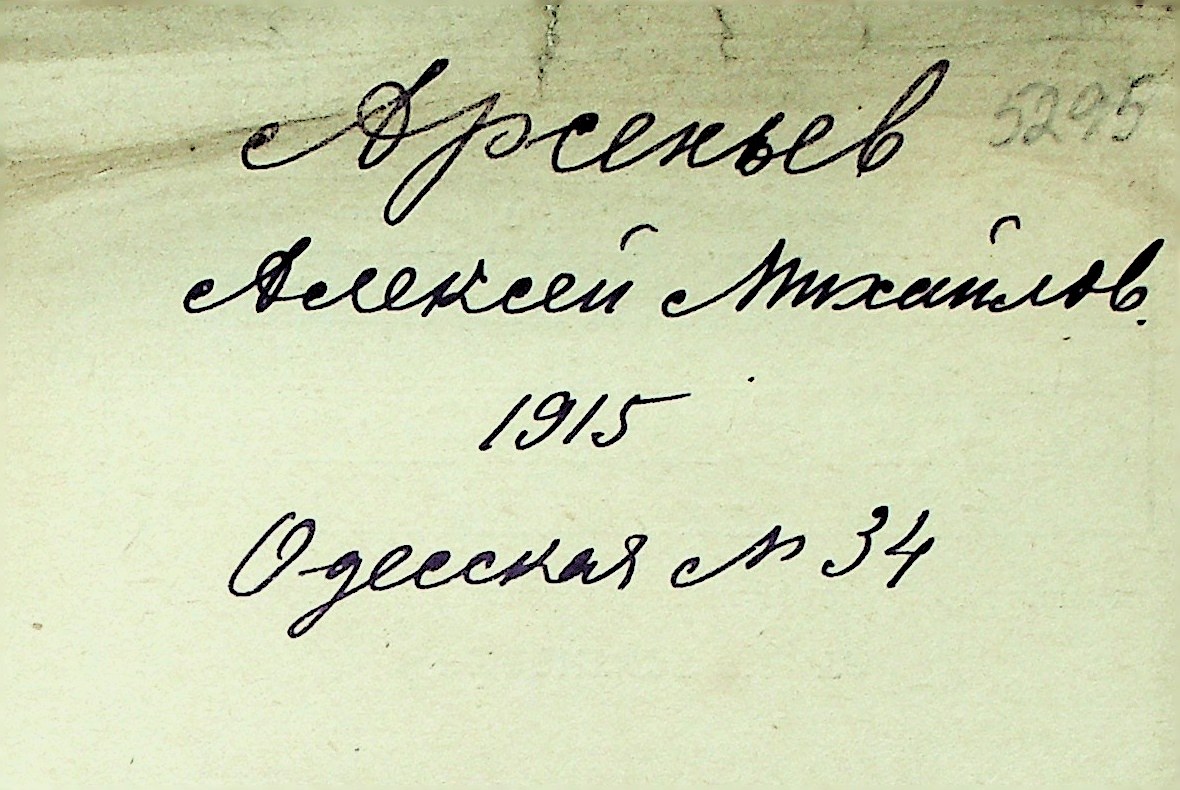 Арсеньев 5295
Алексей Михайлов.
1915
Одесская № 34